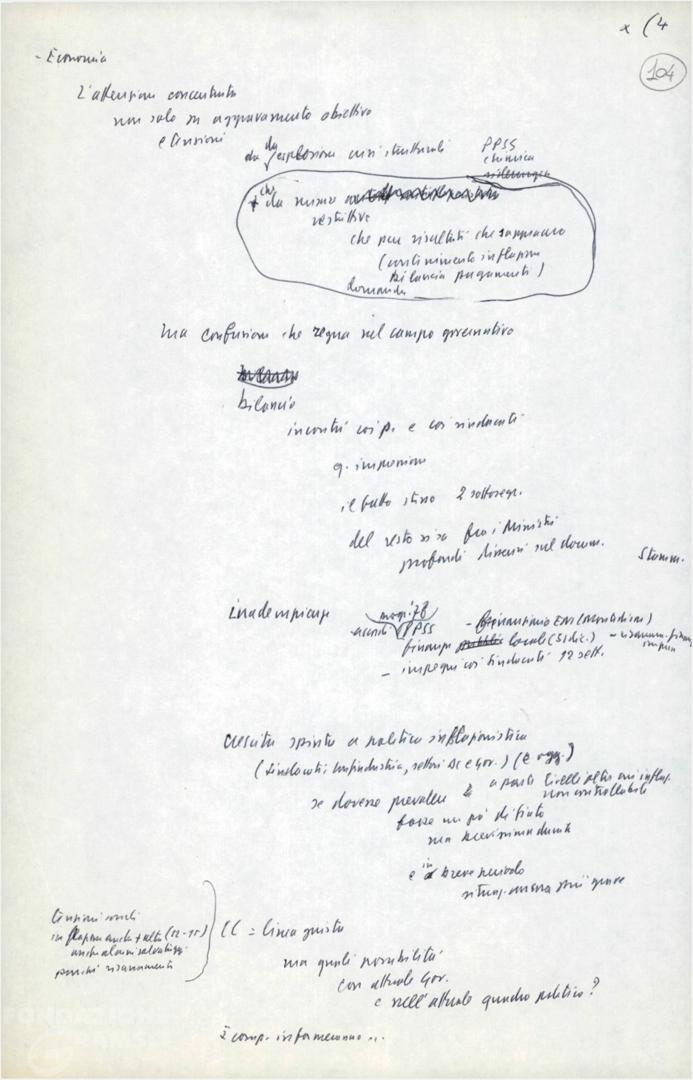 x (4
104
- Economia
L'attenzione concentrata
non solo su aggravamento obiettivo
e tensioni
da da esplosione crisi strutturali PPSS
chimica
siderurgia
+ che da misure
restrittive
che pure risultati che sappiamo
(contenimento inflazione
bilancia pagamenti)
domanda
ma confusione che regna nel campo governativo
bilancio
incontri coi p. e coi sindacati
q. impressione
il fatto stesso 2 sottosegr.
del resto si sa fra i Ministri
profondi dissensi sul docum.
Stamm.
Inadempienze magg. 78
PPSS - ENI (Montedison)
finanza locale (31 dic.) - risanam. finanz.
imprese
- impegni coi sindacati 12 sett.
Crescita spinta a politica inflazionistica
(sindacati, confindustria, settori DC e Gov.) (e oggi)
se dovesse prevalere a parte livelli altri inflaz.
non controllabili
forse un po' di fiato
ma brevissima durata
e in breve periodo
situaz. ancora più grave
tensioni sociali
inflazione anche + alta (12-15)
anche alcuni salvataggi
perché risanamenti
CC = linea giusta
ma quali possibilità
con attuale Gov.
e nell'attuale quadro politico?
I comp. informeranno...
FONDAZIONE
GRAMSCI